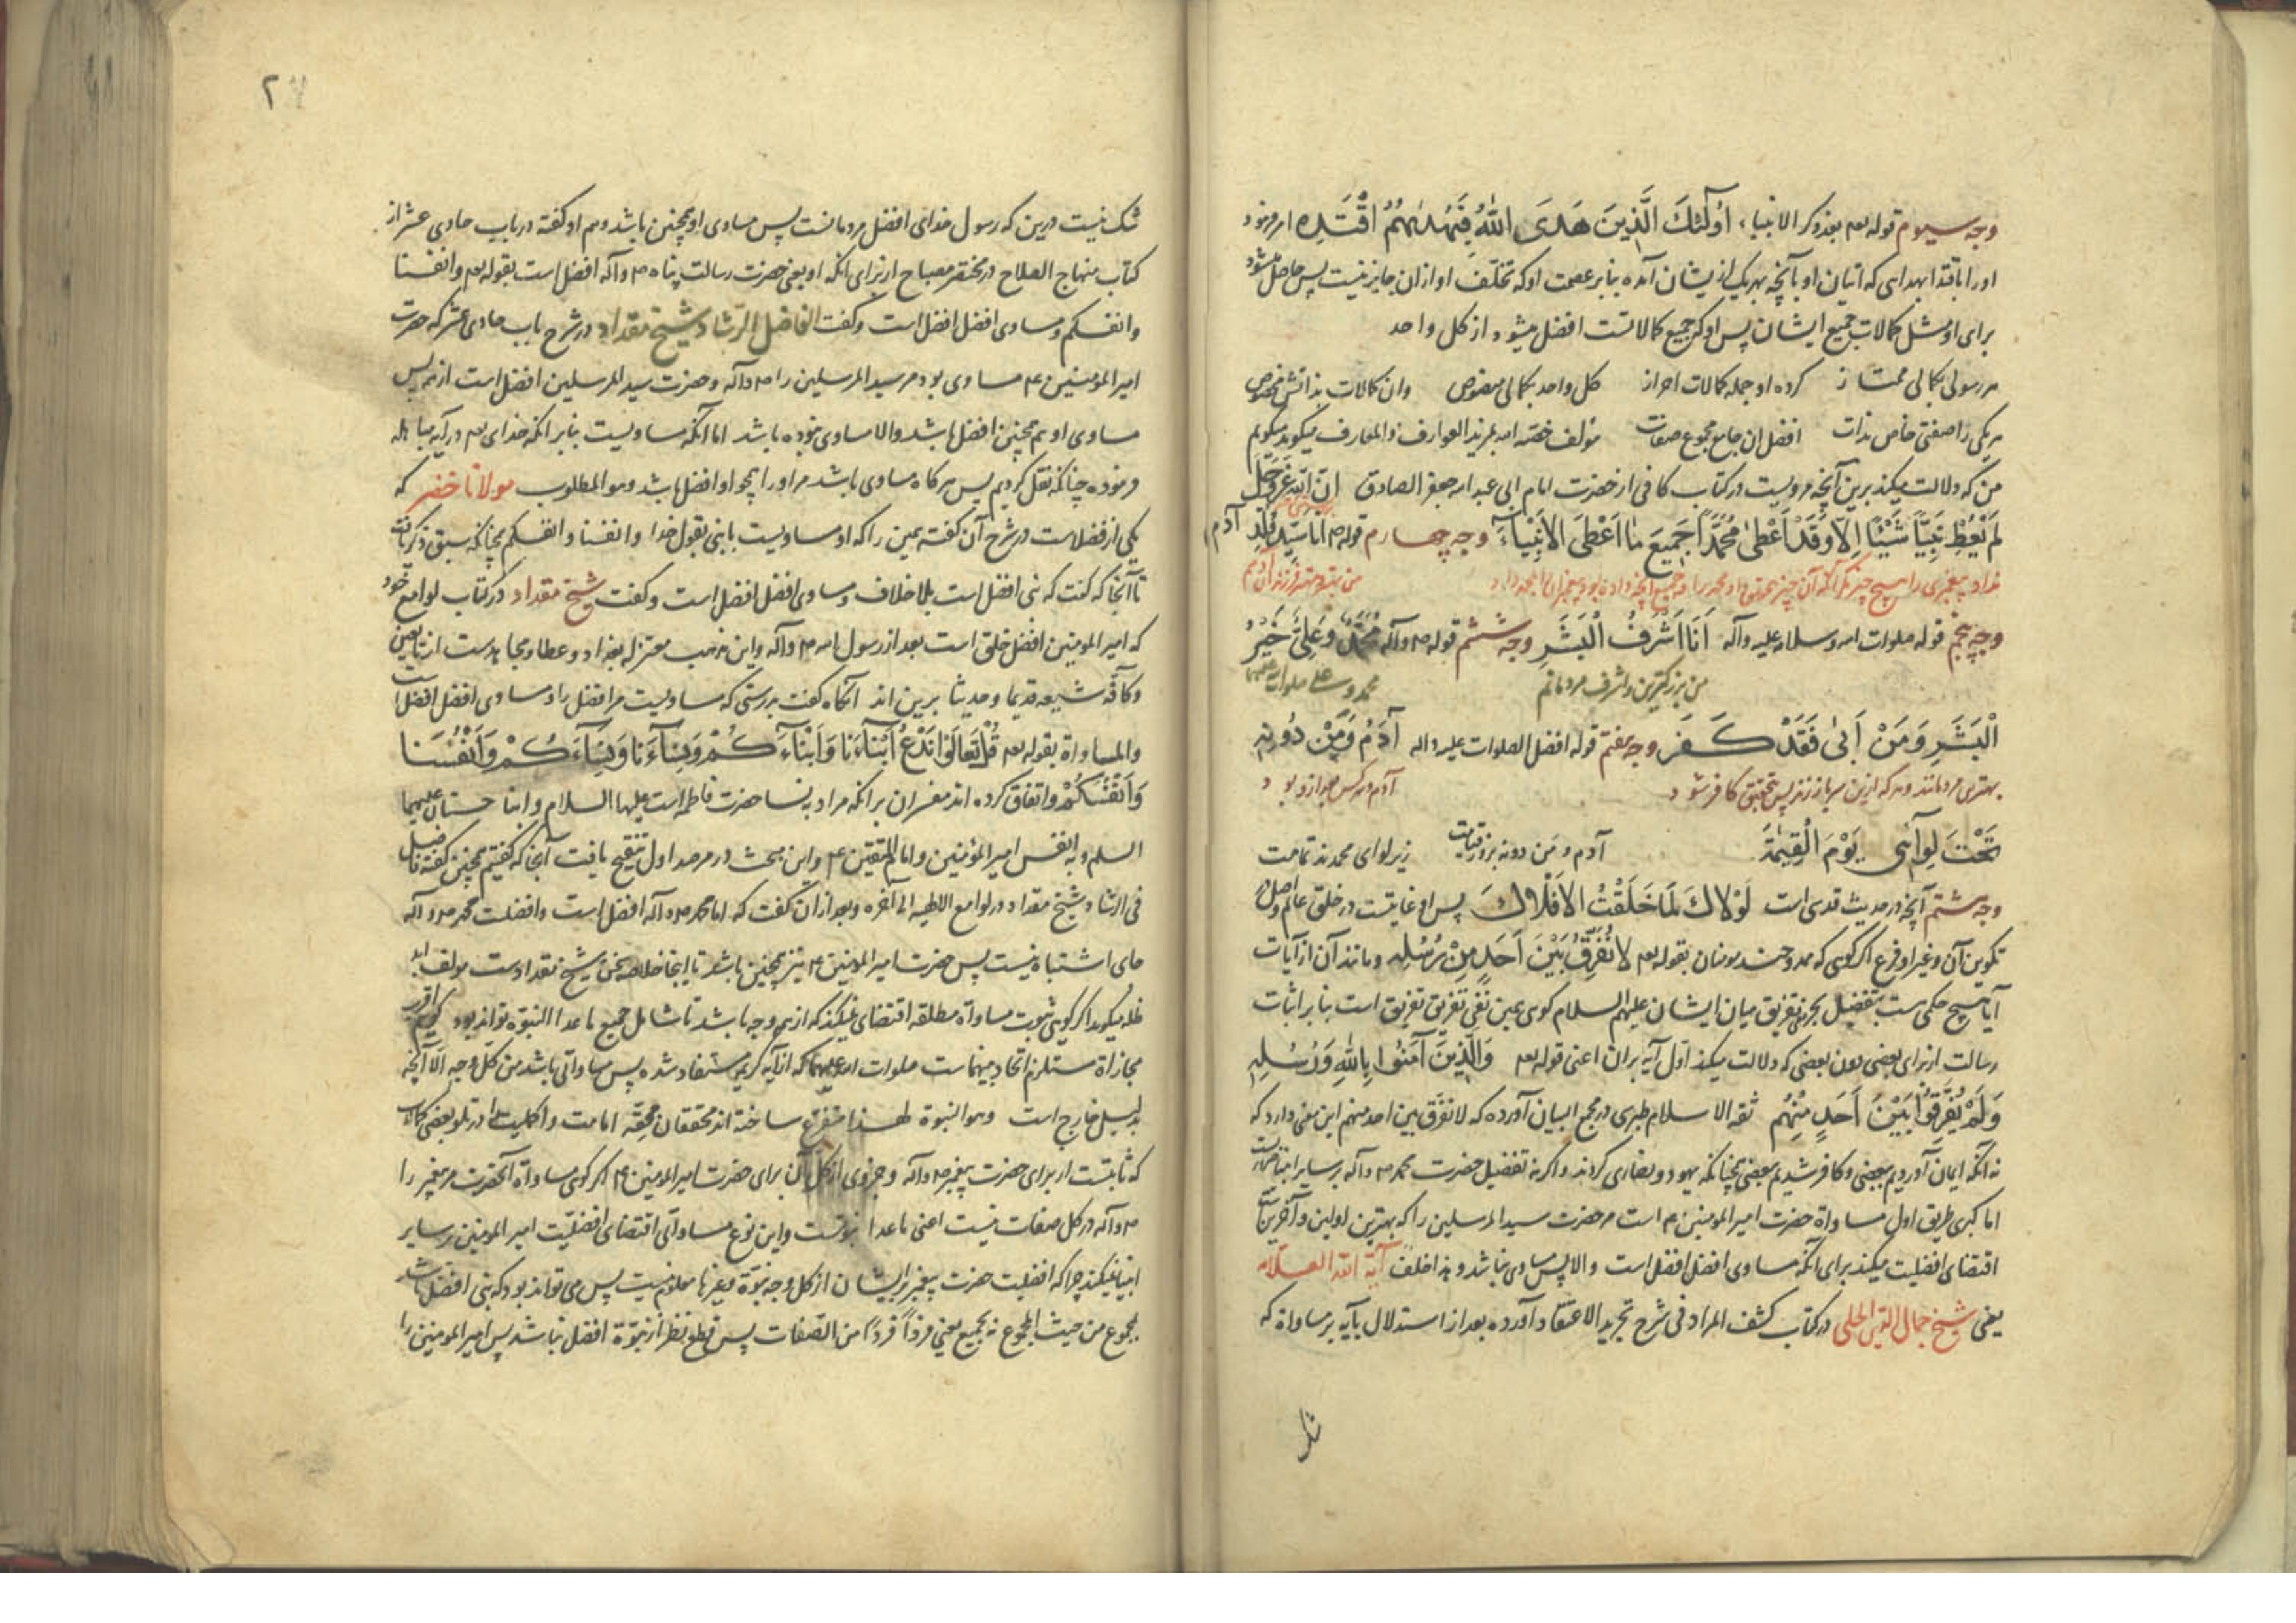 وجه سیوم قوله تعم بعد ذکر الانبیاء اُولٰٓئِكَ الَّذِينَ هَدَى اللّٰهُ فَبِهُدٰىهُمُ اقْتَدِهِ امر فرمود
اورا باقتدا بهدای که اتیان او بآنچه بهریک از ایشان آمده بنابر عصمت اوکه تخلف او ازان جایز نیست پس حاصل میشود
برای او مثل کمالات جمیع ایشان پس اوکه جمیع کمالاتست افضل میشود از کل واحد
هر رسولی بکمالی ممتاز کرده او جمله کمالات احراز کل واحد بکمالی مخصوص وان کمالات بذاتش مخصوص
هر یکی را صفتی خاص بذات افضل ان جامع مجموع صفات مؤلف خصه الله بمزید العوارف والمعارف میکوید میکویم
من که دلالت میکند برین آنچه مرویست در کتاب کافی از حضرت امام ابی عبد الله جعفر الصادق اِنَّ اللّٰهَ عَزَّوَجَلَّ
لَمْ يُعْطِ نَبِيًّا شَيْئًا اِلَّا وَقَدْ اَعْطىٰ مُحَمَّدًا جَمِيعَ مَا اَعْطَى الْاَنْبِيَاءَ وجه چهارم قوله ص اَنَا سَيِّدُ وُلْدِ آدَمَ
نداد پیغمبری را هیچ چیز مکر آنکه آن چیز بتحقیق داد محمد را جمیع آنچه داده بود پیغمبران را من بهتر و مهتر فرزندان آدمم
وجه پنجم قوله صلوات الله وسلامه علیه وآله اَنَا اَشْرَفُ الْبَشَرِ وجه ششم قوله ص وآله مُحَمَّدٌ وَعَلِيٌّ خَيْرُ
من بزرکترین و اشرف مردمانم محمد و علی صلوات الله علیهما
الْبَشَرِ وَمَنْ اَبىٰ فَقَدْ كَفَرَ وجه هفتم قوله افضل الصلوات علیه واله آدَمُ وَمَنْ دُونَهُ
بهترین مردمانند و هر که ازین سر باز زند پس بتحقیق کافر شود آدم و هر کس جز از او بود
تَحْتَ لِوَآئِى يَوْمَ الْقِيٰمَةِ آدم و من دونه بروز قیامت زیر لوای محمدند تمامت
وجه هشتم آنچه در حدیث قدسی است لَوْلَاكَ لَمَا خَلَقْتُ الْاَفْلَاكَ پس او غایتست در خلق عالم و اصل در
تکوین آن وغیر او فرع اکر کوئی که مدوحند مومنان بقوله تعم لَا نُفَرِّقُ بَيْنَ اَحَدٍ مِنْ رُسُلِهِ و مانند آن از آیات
آیا هیچ حکمی ست بتفضیل بجز نفی تفریق میان ایشان علیهم السلام کوئی عین نفی تفریق تفریق است بنابر اثبات
رسالت از برای بعضی دون بعضی که دلالت میکند اول آیه بران اعنی قوله تعم وَالَّذِينَ آمَنُوا بِاللّٰهِ وَرُسُلِهِ
وَلَمْ يُفَرِّقُوا بَيْنَ اَحَدٍ مِنْهُمْ ثقه الاسلام طبرسی در مجمع البیان آورده که لا نفرق بین احد منهم این معنی دارد که
نه آنکه ایمان آوردیم ببعضی وکافر شدیم ببعضی چنانکه یهود و نصاری کردند واکر نه تفضیل حضرت محمد ص وآله بر سایر انبیا
اما کبری طریق اول مساواة حضرت امیر المومنین ع است مر حضرت سید المرسلین را که بهترین اولین وآخرین
اقتضای افضلیت میکند برای آنکه مساوی افضل افضل است والا پس مساوی نباشد و هذا خلف آیة الله العلامه
یعنی شیخ جمال الدین الحلی در کتاب کشف المراد فی شرح تجرید الاعتقاد آورده بعد از استدلال بآیه بر مساواة که
شک
شک نیست درین که رسول خدای افضل مردمانست پس مساوی او همچنین باشد وهم او کفته در باب حادی عشر از
کتاب منهاج الصلاح در مختصر مصباح از برای انکه او یعنی حضرت رسالت پناه ص وآله افضل است بقوله تعم وانفسنا
وانفسکم و مساوی افضل افضل است وکفت الفاضل الرشاد شیخ مقداد در شرح باب حادی عشر که حضرت
امیر المؤمنین ع مساوی بود مر سید المرسلین را ص وآله وحضرت سید المرسلین افضل است از همه پس
مساوی او هم همچنین افضل باشد والا مساوی نبوده باشد اما آنکه مساویست بنابر انکه خدای تعم در آیه مباهله
فرموده چنانکه نقل کردیم پس هرکاه مساوی باشد مر اورا همچو او افضل باشد وهو المطلوب مولانا خضر که
یکی از فضلاست در شرح آن کفته همین را که او مساویست با نبی بقول خدا وانفسنا وانفسکم چنانکه سبق ذکر یافت
تا آنجا که کفت که نبی افضل است بلا خلاف و مساوی افضل افضل است وکفت شیخ مقداد در کتاب لوامع خود
که امیر المومنین افضل خلق است بعد از رسول الله ص وآله واین مذهب معتزله بغداد وعطا ومجاهدست از تابعین
وکافّه شیعه قدیما وحدیثا برین اند آنکاه کفت بدرستی که مساویست مر افضل را و مساوی افضل افضل است
والمساواة بقوله تعم قُلْ تَعَالَوْا نَدْعُ اَبْنَآءَنَا وَاَبْنَآءَكُمْ وَنِسَآءَنَا وَنِسَآءَكُمْ وَاَنْفُسَنَا
وَاَنْفُسَكُمْ واتفاق کرده اند مفسران بر انکه مراد بنسا حضرت فاطمه است علیها السلام وابنا حسنان علیهما
السلم وبه انفس امیر المؤمنین وامام المتقین ع واین مبحث در مرصد اول تنقیح یافت آنجا که کفتیم همچنین کفته فاضل
فی الرشاد شیخ مقداد در لوامع الالهیه الی آخره وبعد ازان کفت که اما محمد ص وآله افضل است وافضلیت محمد ص وآله
جای اشتباه نیست پس حضرت امیر المومنین ع نیز همچنین باشد تا اینجا خلاصه سخن شیخ مقدادست مولف ابد
ظله میکوید اکر کوئی ثبوت مساواة مطلقه اقتضای نمیکند که از همه وجه باشد تا شامل جمیع ما عدا النبوه تواند بود کویم
مجازاة مستلزم اتحاد بینهماست صلوات الله علیهما که از آیه کریمه مستفاد شده پس مساواتی باشد من کل وجه الا آنچه
بدلیل خارج است وهو النبوة لهذا متفرع ساخته اند محققان محقه امامت واکملیت را در تلو بعضی کمالات
که ثابتست از برای حضرت پیغمبر ص وآله وجزوی از کل آن برای حضرت امیر المومنین ع اکر کوئی مساواة آنحضرت مر پیغمبر را
ص وآله در کل صفات نیست اعنی ما عدا نبوتست واین نوع مساواتی اقتضای افضلیّت امیر المومنین بر سایر
انبیا نمیکند چرا که افضلیت حضرت پیغمبر بر ایشان از کل وجه نبوّة وغیرها معلوم نیست پس می تواند بود که نبی افضل باشد
مجموع من حیث المجموع نه بجمیع یعنی فرداً فرداً من الصفات پس قطع نظر از نبوّة افضل نباشد پس امیر المومنین را